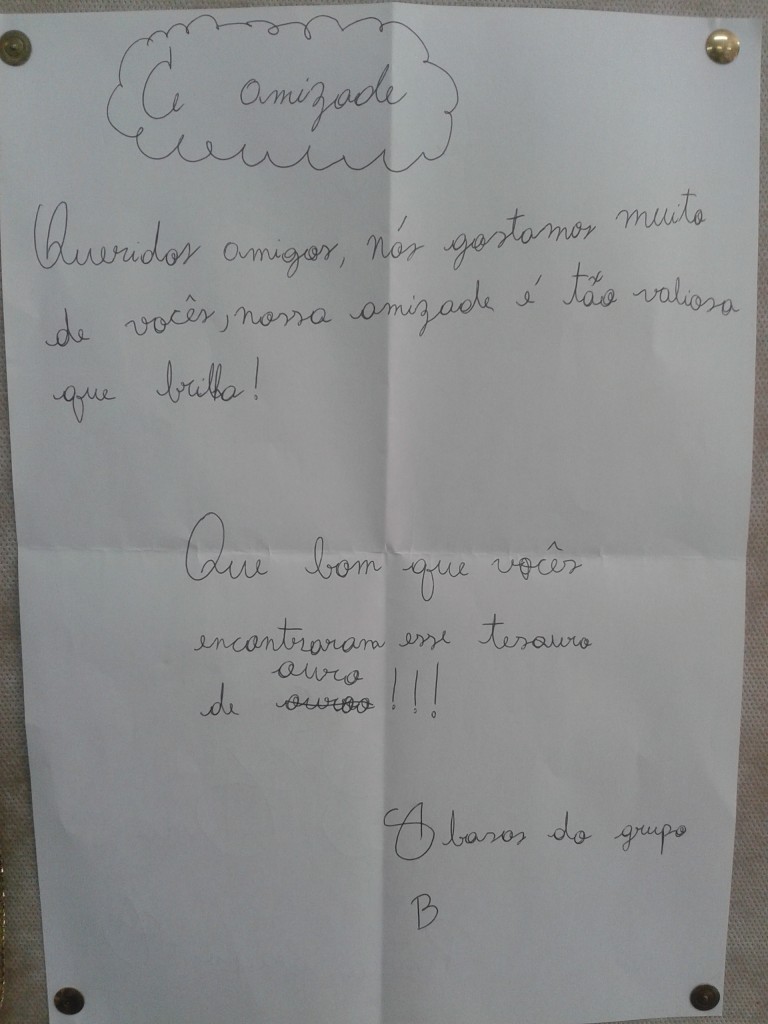 A amizade
Queridos amigos, nós gostamos muito
de vocês, nossa amizade é tão valiosa
que brilha!
Que bom que vocês
encontraram esse tesouro
ouro
de ouroo !!!
Abasos do grupo
B